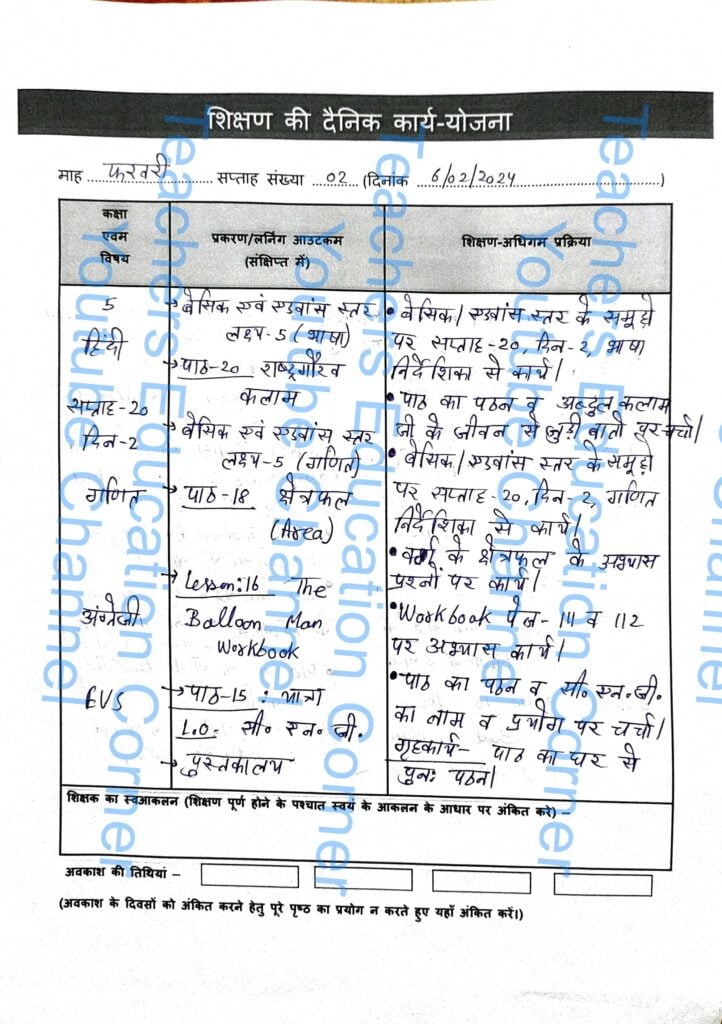 शिक्षण की दैनिक कार्य-योजना
माह फरवरी सप्ताह संख्या 02 (दिनांक 6/02/2024)
कक्षा एवम विषय
प्रकरण/लर्निंग आउटकम (संक्षिप्त में)
शिक्षण-अधिगम प्रक्रिया
5
हिंदी
सप्ताह-20
दिन-2
→ बेसिक एवं एडवांस स्तर
लक्ष्य-5 (भाषा)
→ पाठ-20 राष्ट्रगौरव
कलाम
• बेसिक/एडवांस स्तर के समूहों
पर सप्ताह-20, दिन-2, भाषा
निर्देशिका से कार्य।
• पाठ का पठन व अब्दुल कलाम
जी के जीवन से जुड़ी बातों पर चर्चा।
गणित
→ बेसिक एवं एडवांस स्तर
लक्ष्य-5 (गणित)
→ पाठ-18 क्षेत्रफल
(Area)
• बेसिक/एडवांस स्तर के समूहों
पर सप्ताह-20, दिन-2, गणित
निर्देशिका से कार्य।
• वर्ग के क्षेत्रफल के अभ्यास
प्रश्नों पर कार्य।
अंग्रेजी
→ Lesson:16 The
Balloon Man
Workbook
• Workbook पेज- 111 व 112
पर अभ्यास कार्य।
EVS
→ पाठ-15 :
L.O. सी० एन० जी०
→ पुस्तकालय
• पाठ का पठन व सी० एन० जी०
का नाम व प्रयोग पर चर्चा।
गृहकार्य- पाठ का घर से
पुनः पठन।
शिक्षक का स्वआकलन (शिक्षण पूर्ण होने के पश्चात स्वयं के आकलन के आधार पर अंकित करें) –
अवकाश की तिथियां –
(अवकाश के दिवसों को अंकित करने हेतु पूरे पृष्ठ का प्रयोग न करते हुए यहाँ अंकित करें।)
Teachers Education Corner
Youtube Channel
Teachers Education Corner
Youtube Channel
Teachers Education Corner
Youtube Channel